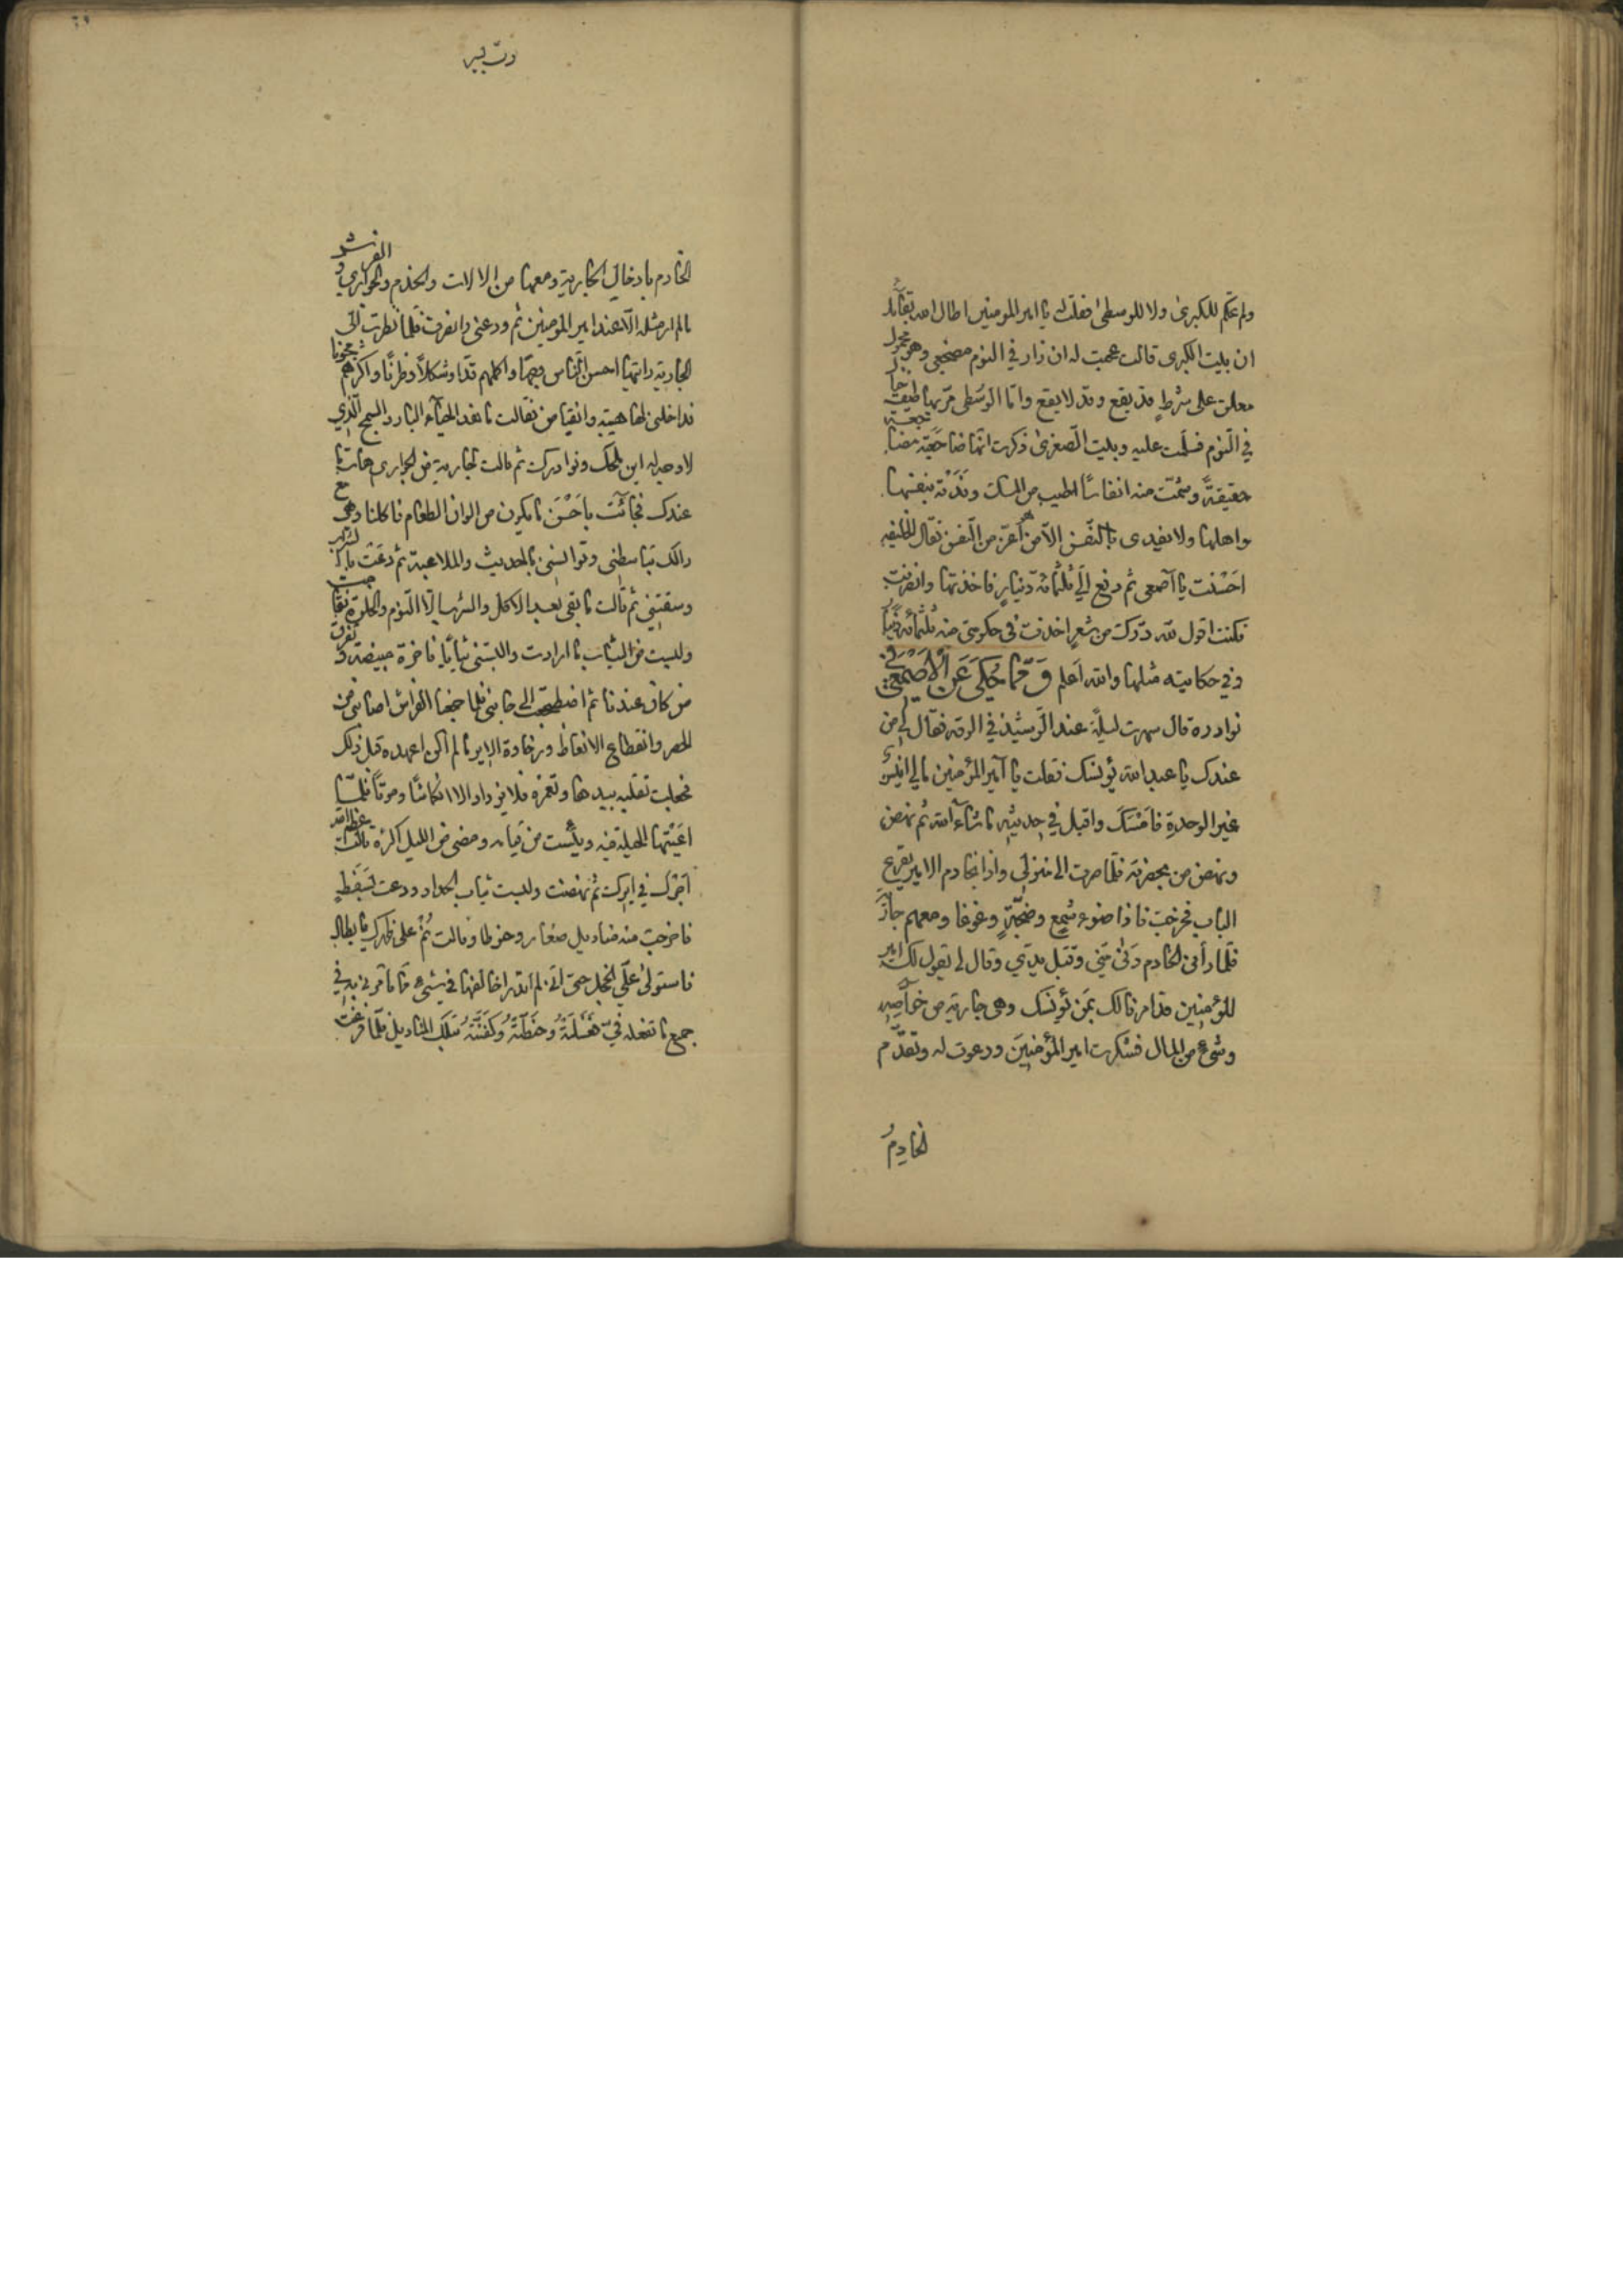 ولم تحكم للكبرى ولا للوسطى فقلت يا امير المومنين اطال الله بقآئك
ان بيت الكبرى قالت عجبت له ان زار في النوم مضجعي وهو محمول
معلق على شرط قد يقع وقد لا يقع واما الوسطى مر بها طيف خيال
في النوم فسلمت عليه وبيت الصغرى ذكرت انها ضاجعته مضاجعة
حقيقة وشمت منه انفاسا اطيب من المسك وفدته بنفسها
واهلها ولا يفدى بالنفس الا من هو اعز من النفس فقال الخليفه
احسنت يا اصمعي ثم دفع الي ثلثمائة دينار فاخذتها وانصرفت
فكنت اقول لله درك من شعر اخذت في حكومتي منه ثلثمائة دينار
وفي حكايته مثلها والله اعلم وَمِمَّا حُكِيَ عَنِ الْأَصْمَعِي في
نوادره قال سهرت ليلة عند الرشيد في الرقه فقال لي من
عندك يا عبد الله يؤنسك فقلت يا امير المؤمنين مالي انيس
غير الوحدة فامسك واقبل في حديثه ما شاء الله ثم نهض
ونهض من بحضرته فلما صرت الى منزلي واذا بخادم الامير يقرع
الباب فخرجت فاذا ضوء شمع وضجة وغوغا ومعهم جاز
فلما رأني الخادم دنى مني وقبل يدي وقال لي تقول لك امير
المؤمنين قد امرنا لك بمن يؤنسك وهي جارية من خواصه
وشيء من المال فشكرت امير المؤمنين ودعوت له وتقدم
الخادم
الخادم بادخال الجارية ومعها من الالات والخدم والجواري والفرش
مالم ار مثله الا عند امير المومنين ثم ودعني وانصرف فلما نظرت الى
الجارية رايتها احسن الناس وجها واكملهم قدا وشكلا وظرفا واكثرهم مجونا
فداخلني لها هيبة وانقباض فقالت ما هذا الحياء البارد السمج الذي
لا وجه له اين ملحك ونوادرك ثم قالت لجارية من الجواري هات ما
عندك فجائت باحسن ما يكون من الوان الطعام فاكلنا وهي مع
ذالك تباسطني وتوانسني بالحديث والملاعبة ثم دعت بالشراب
وسقتني ثم قالت ما بقي بعد الاكل والشرب الا النوم والخلوة فقامت
ولبست من الثياب ما ارادت والبستني ثيابا فاخرة مبيضة وتفرق
من كان عندنا ثم اضطجعت الى جانبي فلما جمعنا الفراش اصابني من
الحصر وانقطاع الانعاظ ورخاوة الاير ما لم اكن اعهده قبل ذلك
فجعلت تقلبه بيدها وتغمزه فلا يزداد الا انكماشا وموتا فلمّا
اعيتها الحيلة فيه ويئست من قيامه ومضى من الليل اكثره قالت عظم الله
اجرك في ايرك ثم نهضت ولبست ثياب الحداد ودعت بسفط
فاخرجت منه مناديل صغار وحنوطا وقالت نم على ظهرك يا بطال
فاستولى علي الخجل حتى اني لم اقدر اخالفها في شيء مما تأمرني به في
جميع ما تفعله في فغسلته وحنطته وكفنته بتلك المناديل فلما فرغت